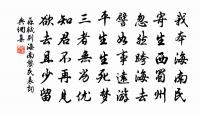 我本海南民
寄生西蜀州
忽然跨海去
譬如事遠遊
平生生死夢
三者無劣優
知君不再見
欲去且少留
蘇軾別海南黎民表詞
典網集